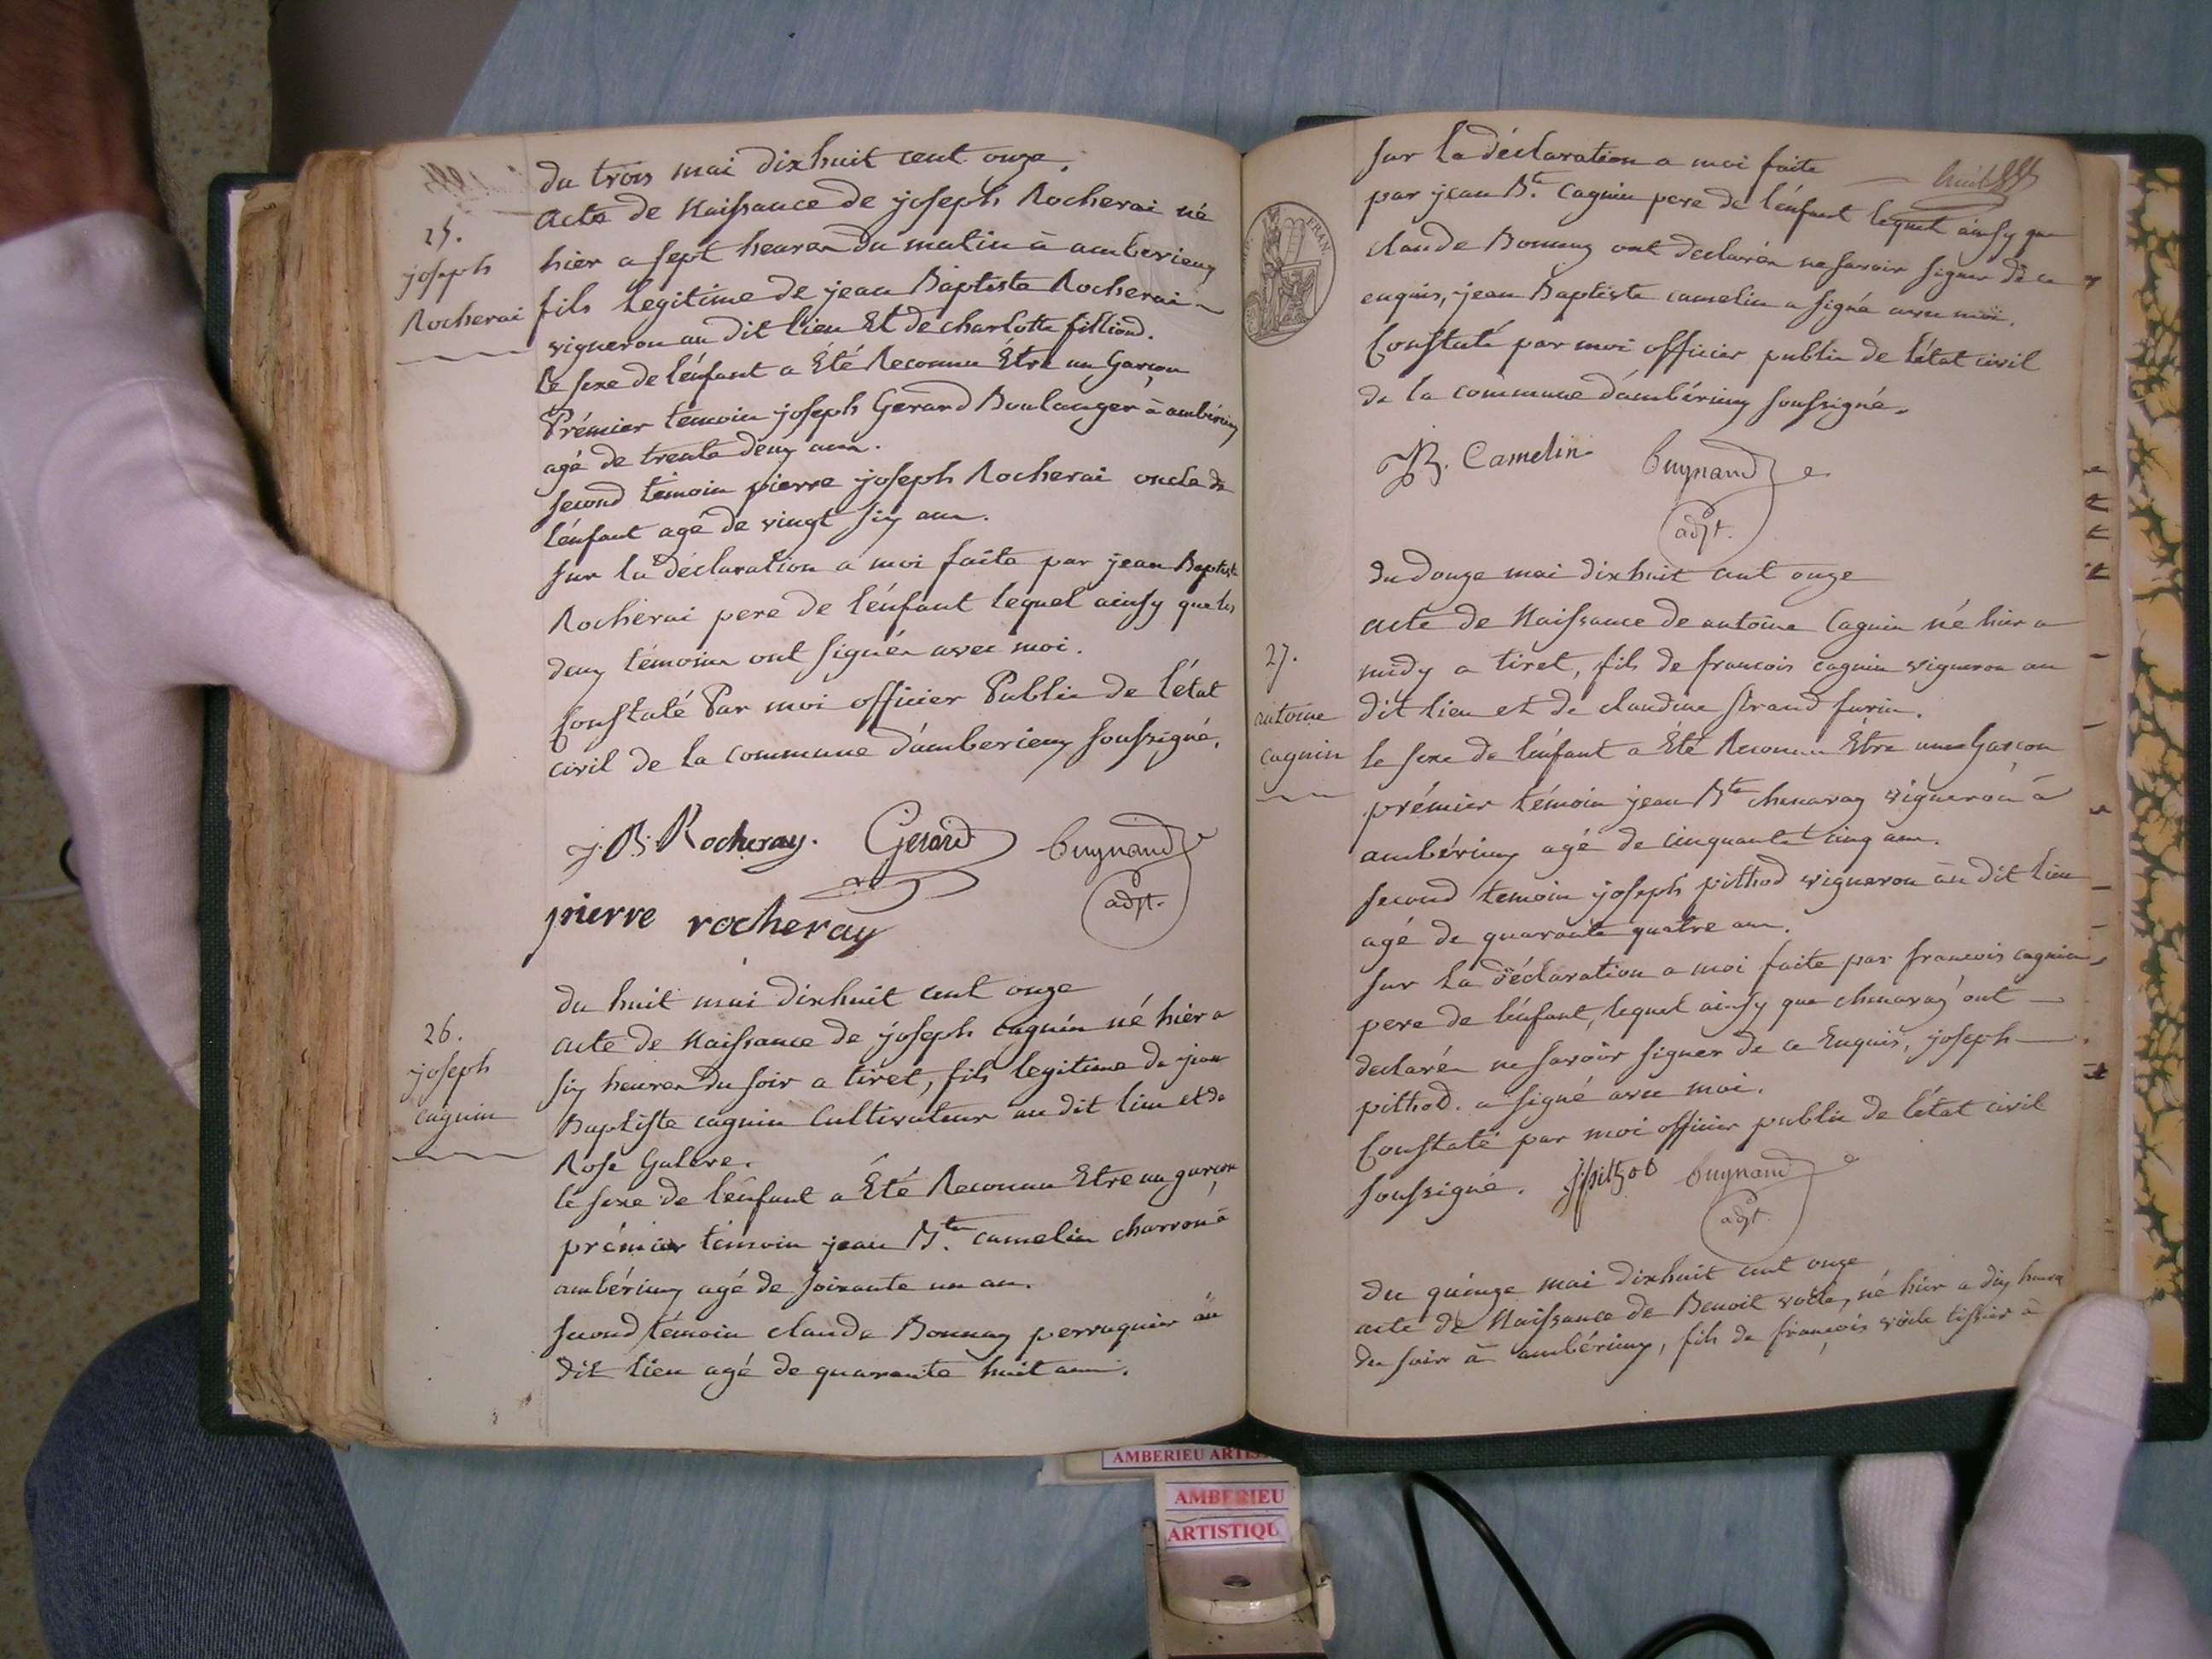 du trois mai dixhuit cent onze.
acte de Naissance de joseph Rocherai né
hier a sept heures du matin à amberieux
fils legitime de jean Baptiste Rocherai
vigneron au dit lieu Et de charlotte filliond.
le sexe de l'énfant a Eté Reconnu Être un Garçon
Prémier temoin joseph Gérard Boulanger à ambérieux
agé de trente deux ans.
second témoin pierre joseph Rocherai oncle de
l'énfant agé de vingt six ans.
sur la déclaration a moi faite par jean Baptiste
Rocherai pere de l'énfant lequel ainsy que les
deux témoins ont signés avec moi.
Constaté Par moi officier Public de l'état
civil de la commune d'amberieux soussigné.
25.
joseph
Rocherai
J. B. Rocheray. Gerard buynand
adjt.
pierre rocheray
26.
joseph
cagnin
du huit mai dixhuit cent onze
acte de Naissance de joseph cagnin né hier a
six heures du soir a tiret, fils legitime de jean
Baptiste cagnin Cultivateur au dit lieu et de
Rose Galere.
le sexe de l'énfant a Été Reconnu Etre un garçon
prémier témoin jean Bte. camelin charron à
ambérieux agé de soixante un an.
second témoin claude Bonnay perruquier au
dit lieu agé de quarante huit ans.
huit
FRAN
sur la déclaration a moi faite
par jean Bte. Cagnin pere de l'énfant lequel ainsy que
claude Bonnay ont declarés ne savoir signer de ce
enquis, jean Baptiste camelin a signé avec moi.
Constaté par moi officier public de l'état civil
de la commune d'ambérieux soussigné.
JB. Camelin buynand
adjt.
27.
antoine
cagnin
du douze mai dixhuit cent onze
acte de Naissance de antoine Cagnin né hier a
midy a tiret, fils de francois cagnin vigneron au
dit lieu et de claudine
le sexe de l'énfant a Été Reconnu Être une Garçon
prémier témoin jean Bte chenavay vigneron à
ambérieux agé de cinquante cinq ans.
second temoin joseph pithod vigneron au dit lieu
agé de quarante quatre ans.
sur la déclaration a moi faite par francois cagnin
pere de l'énfant, lequel ainsy que chenavay ont
declarés ne savoir signer de ce Enquis, joseph
pithod. a signé avec moi.
Constaté par moi officier public de l'état civil
soussigné. J pithod buynand
adjt.
du quinze mai dixhuit cent onze
acte de Naissance de Benoit voële, né hier a dix heures
du soir à ambérieux, fils de françois voële tissier à
AMBERIEU
AMBERIEU
ARTISTIQU